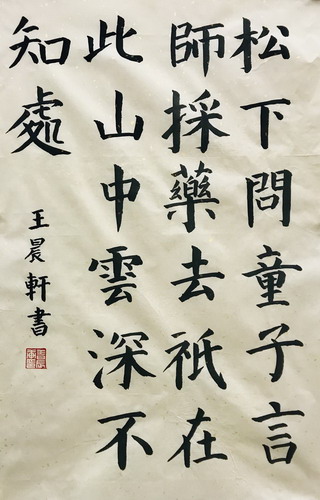 松下問童子言
師採藥去祇在
此山中雲深不
知處
王晨軒書